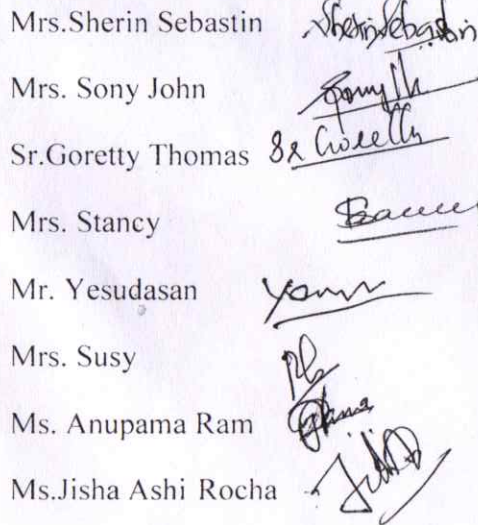 Mrs.Sherin Sebastin Sherin Sebastin
Mrs. Sony John
Sr.Goretty Thomas Sr Goretty
Mrs. Stancy
Mr. Yesudasan
Mrs. Susy
Ms. Anupama Ram
Ms.Jisha Ashi Rocha